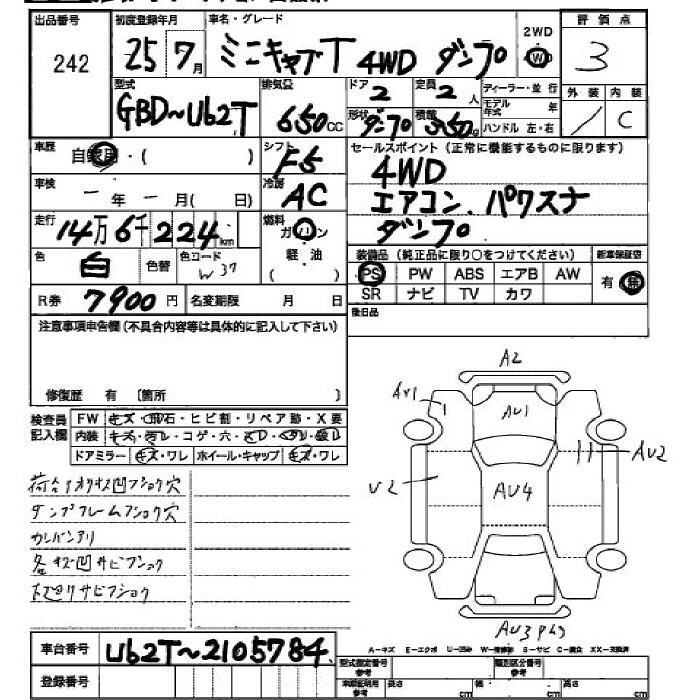 出品番号 初度登録年月 車名・グレード 2WD 評価点
242 25 7月 ミニキャブT 4WD ダンプ W 3
型式 排気公 ドア 定員 ディーラー・並行 外装 内装
GBD~U62T 650cc 2 2人 モデル年式 年 / C
形状 ダンプ 積載 350kg ハンドル 左・右
車歴 自家用・( ) シフト F5 セールスポイント(正常に機能するものに限ります)
4WD
車検 ー年ー月( 日) 冷房 AC エアコン、パワスナ
ダンプ
走行 14万6千224km 燃料 ガソリン
軽・油
( )
色 白 色替 色コード W37 装備品(純正品に限り○をつけてください) 新車保証書
PS PW ABS エアB AW 有・無
R券 7900円 名変期限 月 日 SR ナビ TV カワ
後日品
注意事項申告欄(不具合内容等は具体的に記入して下さい)
修復歴 有 〔箇所 〕
検査員記入欄 FW キズ・飛石・ヒビ割・リペア跡・X要
内装 キズ・汚レ・コゲ・穴
ドアミラー キズ・ワレ ホイール・キャップ キズ・ワレ
A2
AY1
AU1
AU2
U2
AU4
AU3
ダンプフレームフショク穴
各キズ凹サビフショク
下廻りサビフショク
車台番号 U62T~2105784
登録番号
A-キズ E-エクボ U-凹み S-サビ C-腐食
型式指定番号 参考 類別区分番号 参考
車庫証明用 参考 長さ cm 幅 cm 高さ cm